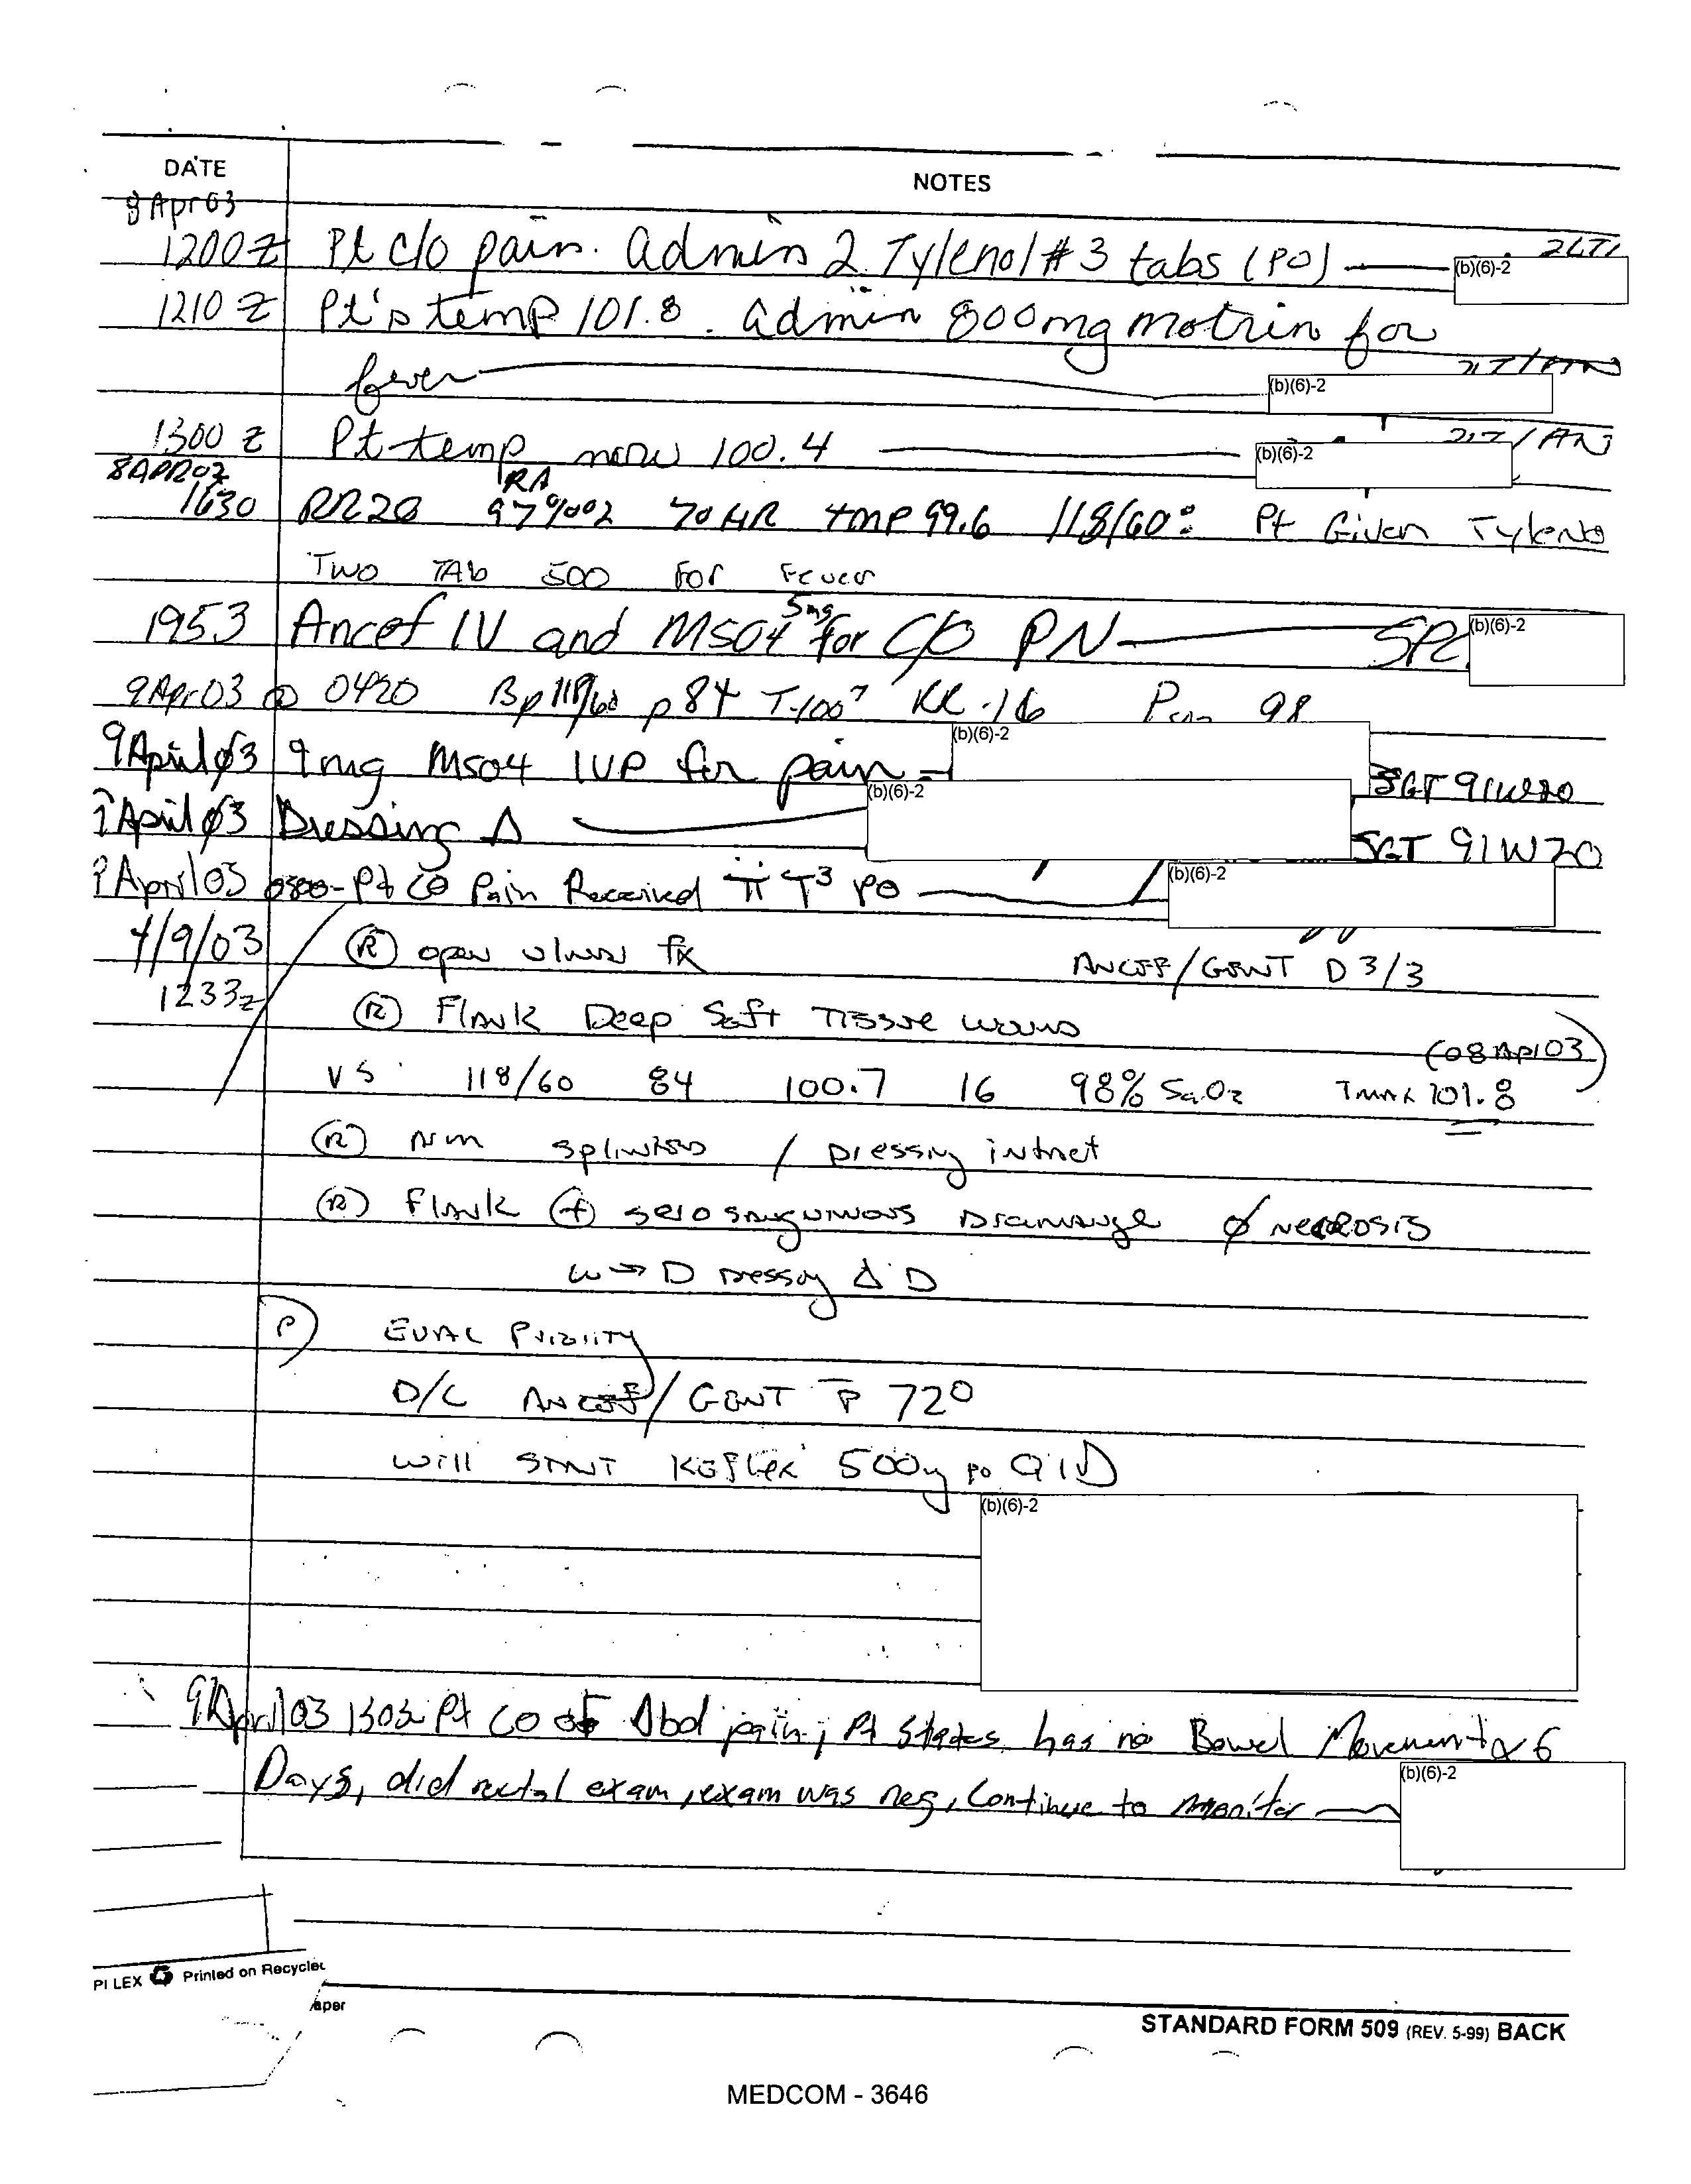 DATE
NOTES
8 Apr 03
1200 Z Pt c/o pain. Admin 2 Tylenol #3 tabs (PO) 2LT/
(b)(6)-2
1210 Z Pt's temp 101.8. Admin 800mg motrin for
fever
(b)(6)-2
1300 Z Pt temp now 100.4 /AN
(b)(6)-2
8 APR 03
RA
1630 RR20 97%O2 70 HR tmp 99.6 118/60: Pt Given Tyleno
Two TAb 500 For Fever
1953 Ancef IV and MSO4 5mg for C/O PN SPC
(b)(6)-2
9 Apr 03 @ 0420 Bp 118/60 p 84 T-100⁷ RR-16 98
(b)(6)-2
9 April 03 9 mg MSO4 IVP for pain SGT 91W20
(b)(6)-2
9 April 03 Dressing Δ SGT 91W20
9 April 03 0800- Pt CO Pain Received ii T³ PO
(b)(6)-2
4/9/03 Ⓡ open ulnar fx ANCEF/GENT D 3/3
1233z Ⓡ Flank Deep Soft Tissue wound
(08 Apr 03)
VS 118/60 84 100.7 16 98% SaO2 Tmax 101.8
Ⓡ Arm splinted / Dressing intact
Ⓡ Flank ⊕ serosanguinous Drainange ø necrosis
W→D Dressing Δ'D
P) EVAC Priority
D/C ANCEF/GENT p̄ 72°
will START Keflex 500mg po QID
(b)(6)-2
9 April 03 Pt CO of Abd pain; Pt States has no Bowel Movement x 6
Days, did rectal exam, exam was neg, Continue to Monitor
(b)(6)-2
PI LEX Printed on Recycled
aper
STANDARD FORM 509 (REV. 5-99) BACK
MEDCOM - 3646